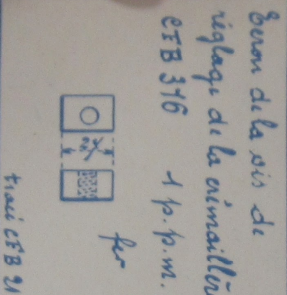 Ecrou de la vis de
réglage de la crémaillère
CFB 316 1 p. p. m.
fer
CFB 21